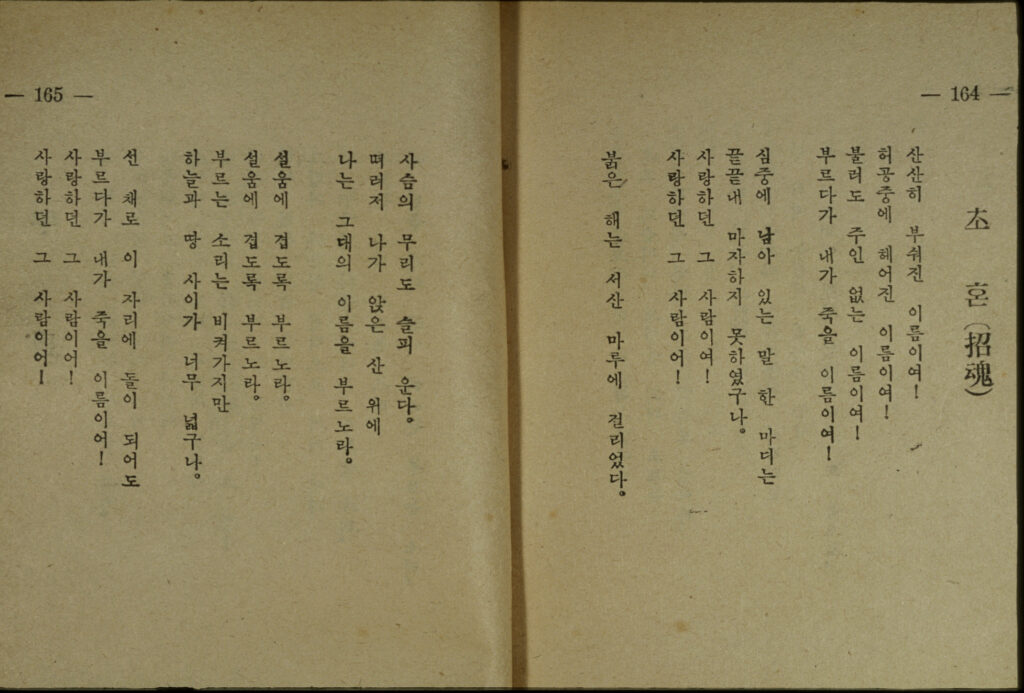 — 164 —
초 혼 (招魂)
산산히 부숴진 이름이여!
허공중에 헤어진 이름이여!
불러도 주인 없는 이름이여!
부르다가 내가 죽을 이름이여!
심중에 남아 있는 말 한 마디는
끝끝내 마자하지 못하였구나.
사랑하던 그 사람이여!
사랑하던 그 사람이어!
붉은 해는 서산 마루에 걸리었다.
— 165 —
사슴의 무리도 슬피 운다.
떠러저 나가 앉은 산 위에
나는 그대의 이름을 부르노라.
설움에 겹도록 부르노라.
설움에 겹도록 부르노라.
부르는 소리는 비켜가지만
하늘과 땅 사이가 너무 넓구나.
선 채로 이 자리에 돌이 되어도
부르다가 내가 죽을 이름이어!
사랑하던 그 사람이어!
사랑하던 그 사람이어!